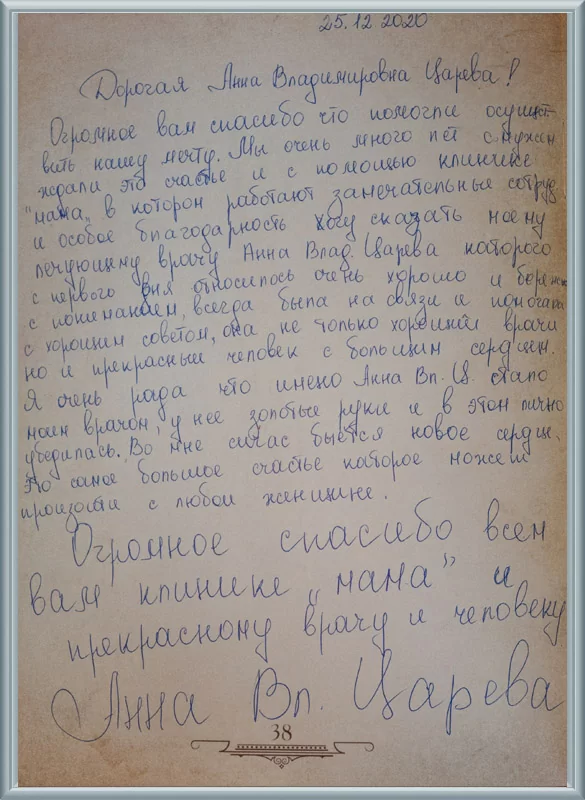 25.12.2020
Дорогая Анна Владимировна Царева!
Огромное вам спасибо что помогли осущест-
вить нашу мечту. Мы очень много лет с мужем
ждали это счастье и с помощью клинике
"мама" в котором работают замечательные сотруд.
и особое благодарность хочу сказать моему
лечующему врачу Анна Влад. Царева каторого
с первого дня относилось очень хорошо и бережно
с пониманием, всегда была на связи и помогала
с хорошим советом, она не только хороший врачи
но и прекрасные человек с большим сердцем.
Я очень рада что имено Анна Вл. Ц. стало
моим врачом, у нее золотые руки и в этом лично
убедилась. Во мне сичас бьется новое сердц.
Это самое большое счастье каторое может
произоти с любой женщине.
Огромное спасибо всем
вам клинике „мама" и
прекрасному врачу и человеку
Анна Вл. Царева
38